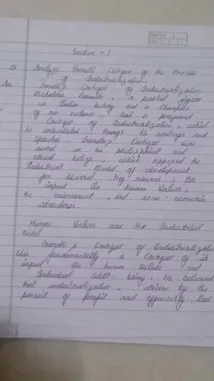 Section - 1
Q. Analyze Gandhi's Critique of the Process of Industrialization.
Ans. Gandhi's Critique of Industrialization
Mohandas Gandhi, a
in Indian history and a champion
of non-violence, had a profound
Critique of Industrialization, which
he articulated through his writings and
Speeches. Gandhi's Critique was
rooted in his philosophical and
ethical beliefs, which opposed the
Industrial Model of development
for several key reasons: its
impact on human values,
the environment, and socio-economic
structures.
Human Values and the Industrial
Model
Gandhi's Critique of Industrialization
was fundamentally a Critique of its
impact on human values and
Individual Well-being. He believed
that industrialization, driven by the
pursuit of profit and efficiency, led